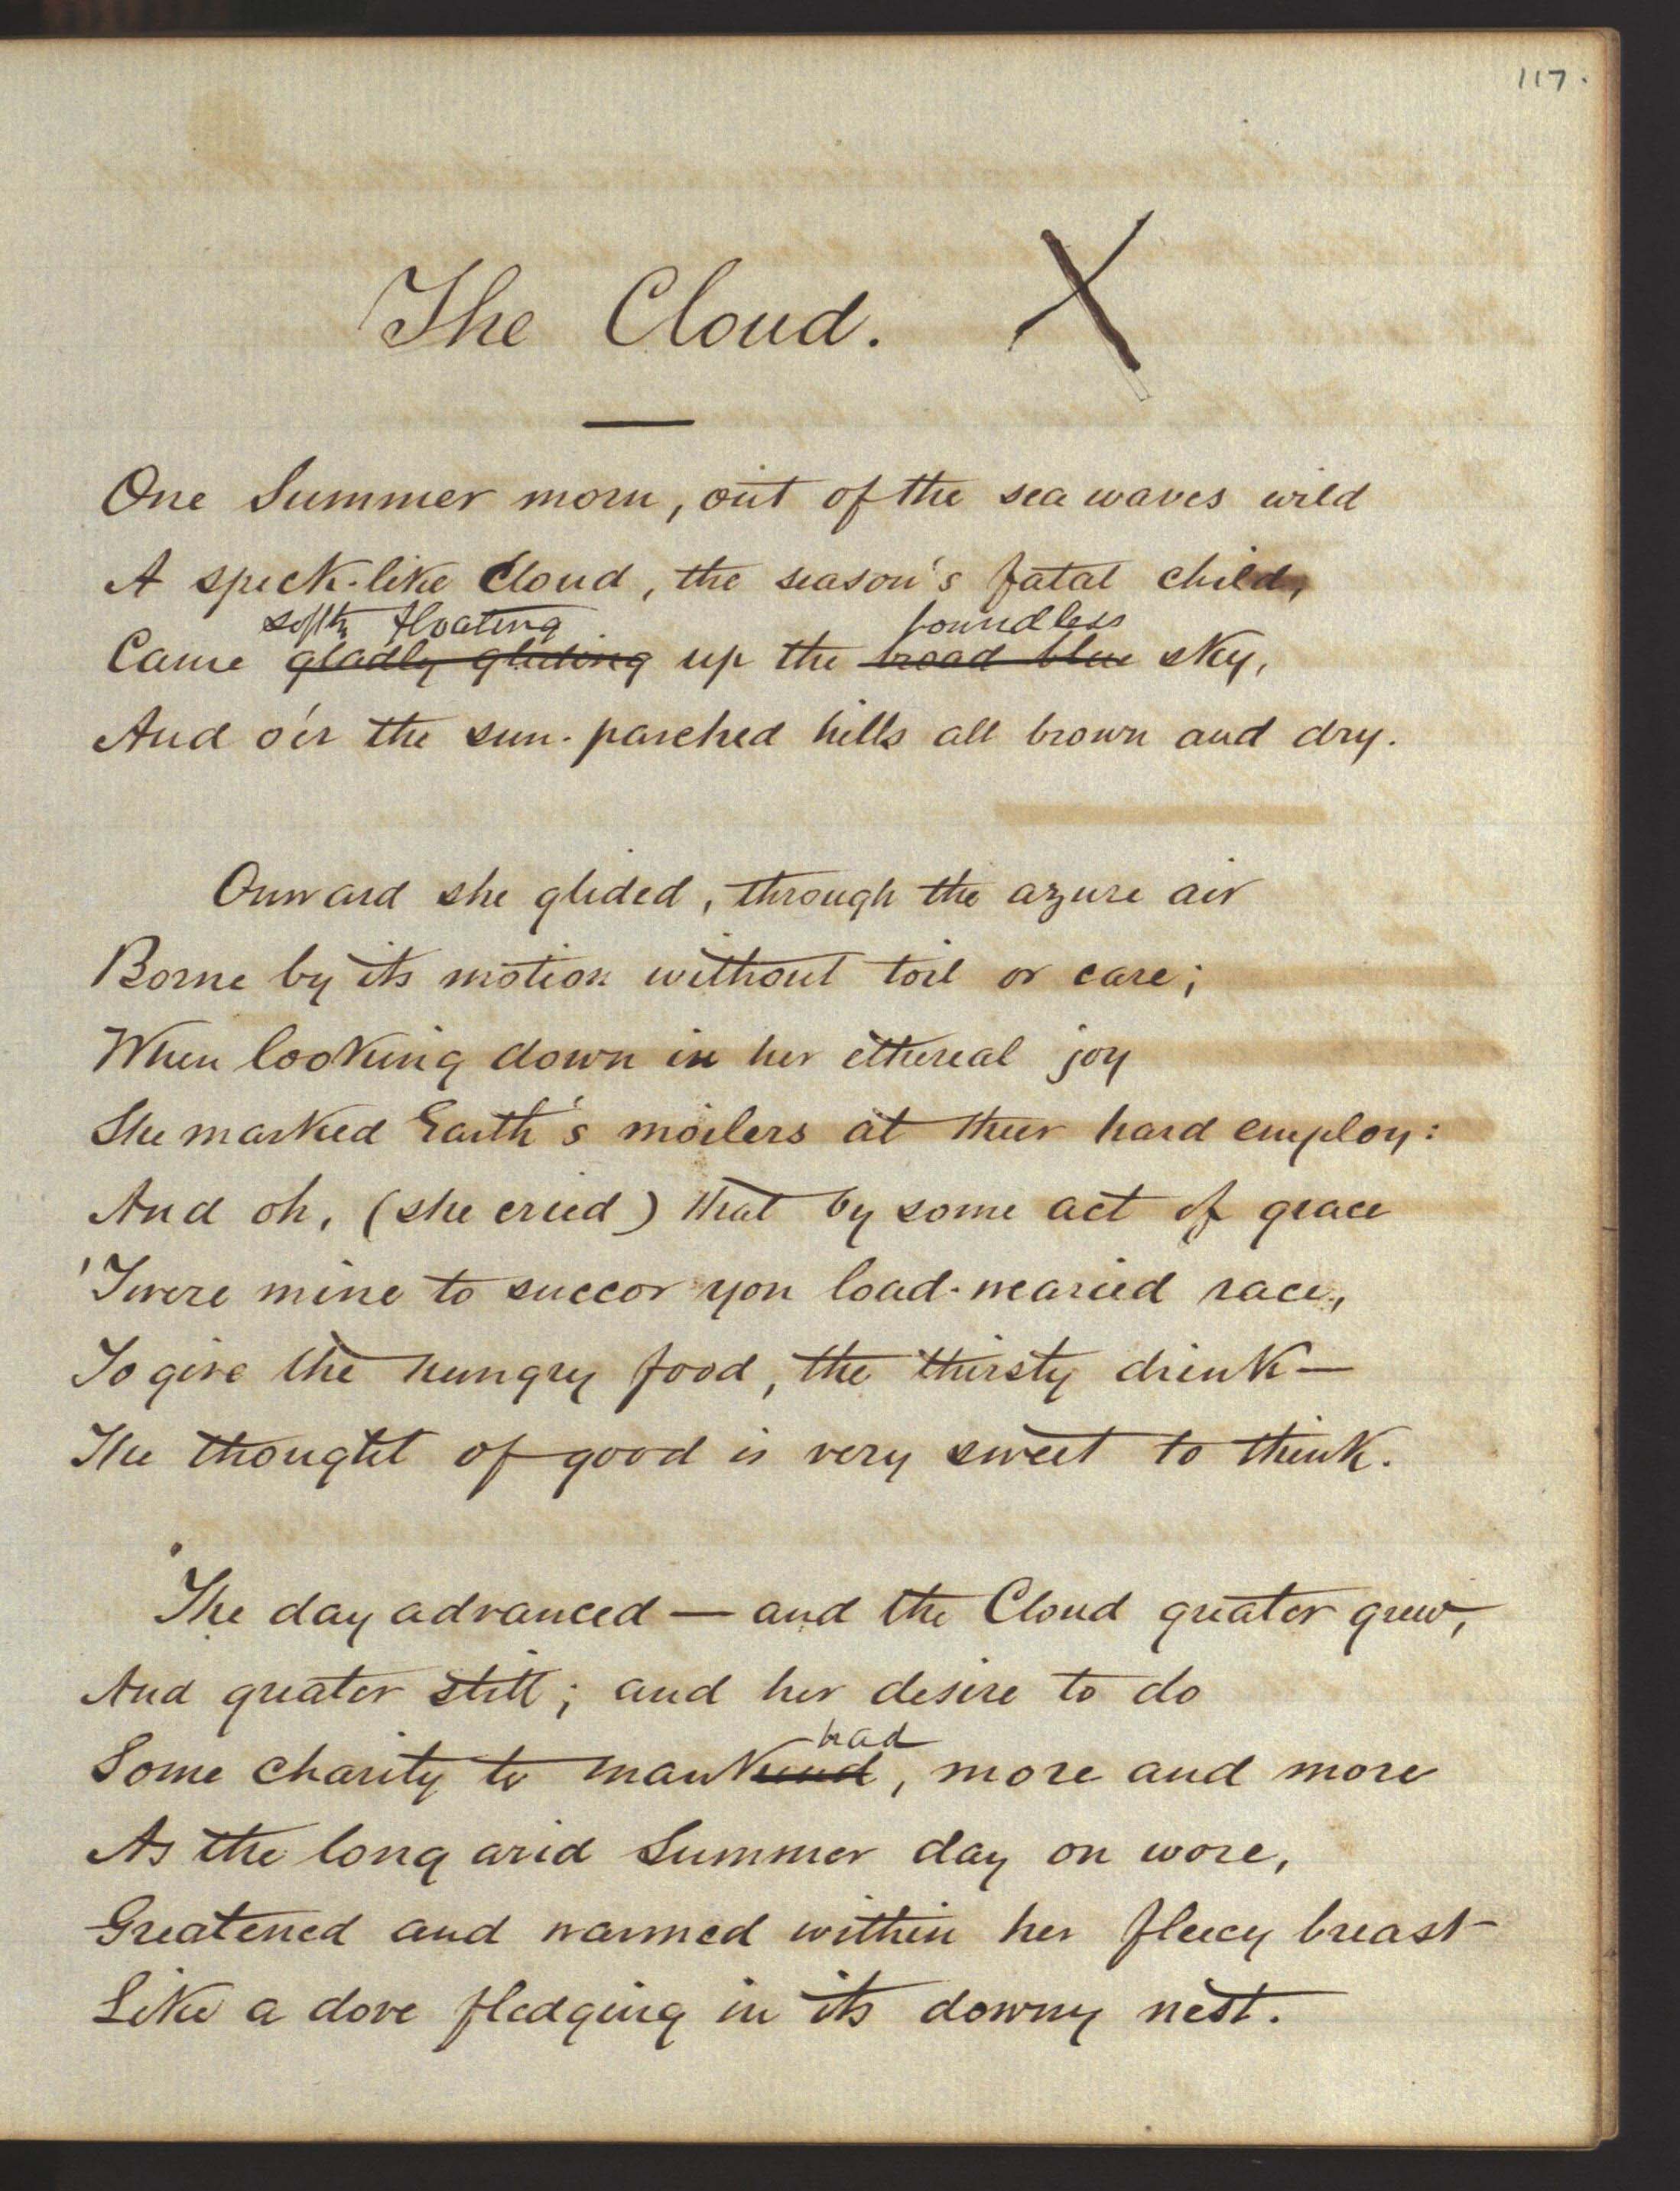 117.
The Cloud. X
One Summer morn, out of the sea waves wild
A speck-like Cloud, the season's fatal child,
softly floating boundless
Came gladly gliding up the broad blue sky,
And o'er the sun-parched hills all brown and dry.
Onward she glided, through the azure air
Borne by its motion without toil or care;
When looking down in her ethereal joy
She marked Earth's moilers at their hard employ:
And oh, (she cried) that by some act of grace
'Twere mine to succor yon load-wearied race,
To give the hungry food, the thirsty drink—
The thought of good is very sweet to think.
The day advanced — and the Cloud greater grew,
And greater still; and her desire to do
had
Some charity to mankind, more and more
As the long arid Summer day on wore,
Greatened and warmed within her fleecy breast
Like a dove fledging in its downy nest.